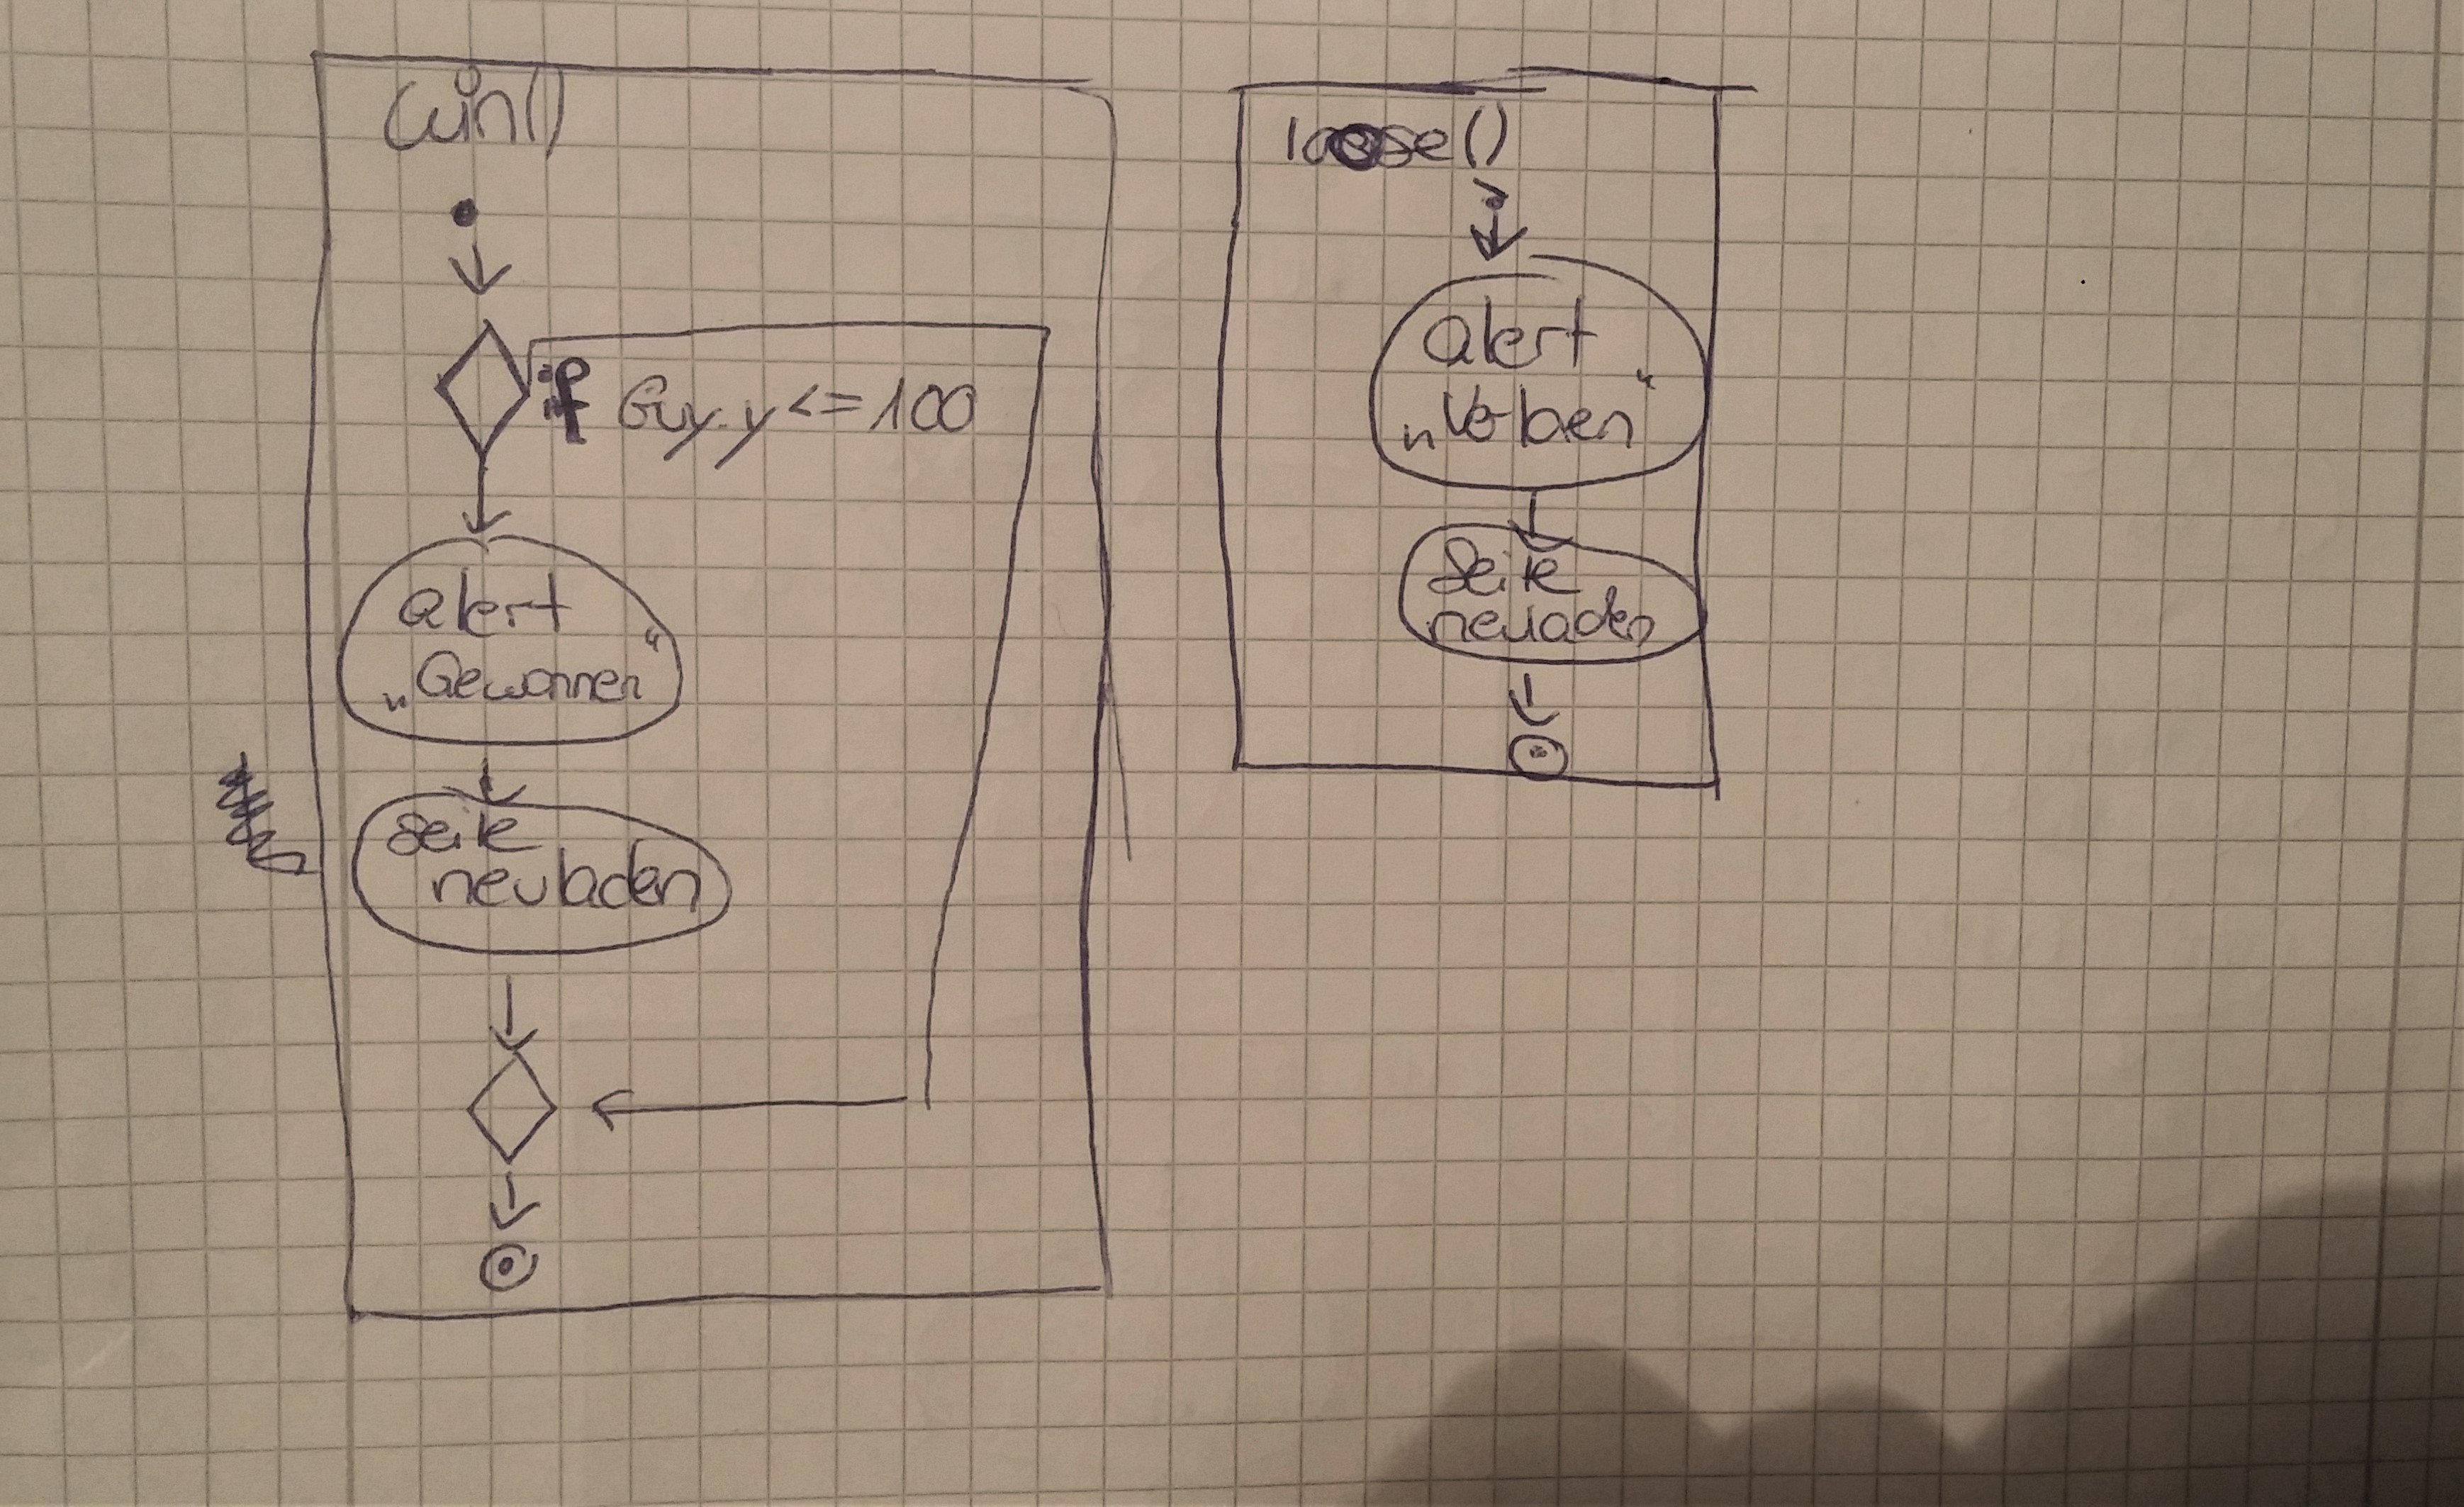 win()
if Guy.y <= 100
alert
„Gewonnen“
Seite
neuladen
loose()
alert
„Verloren“
Seite
neuladen